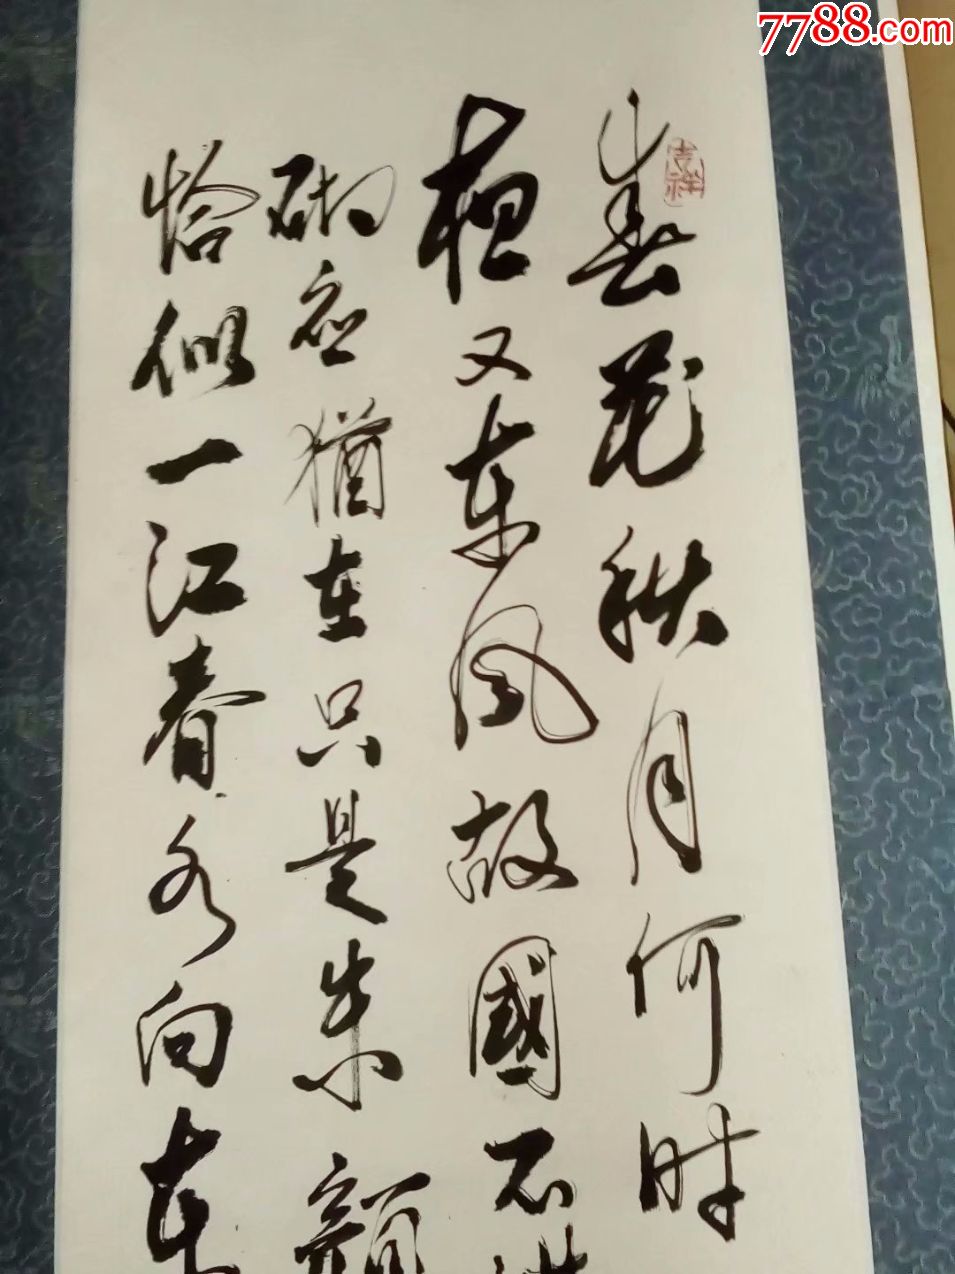 7788.com
吉祥
春花秋月何时
夜又东风故國不堪
砌应猶在只是朱顔
恰似一江春水向东